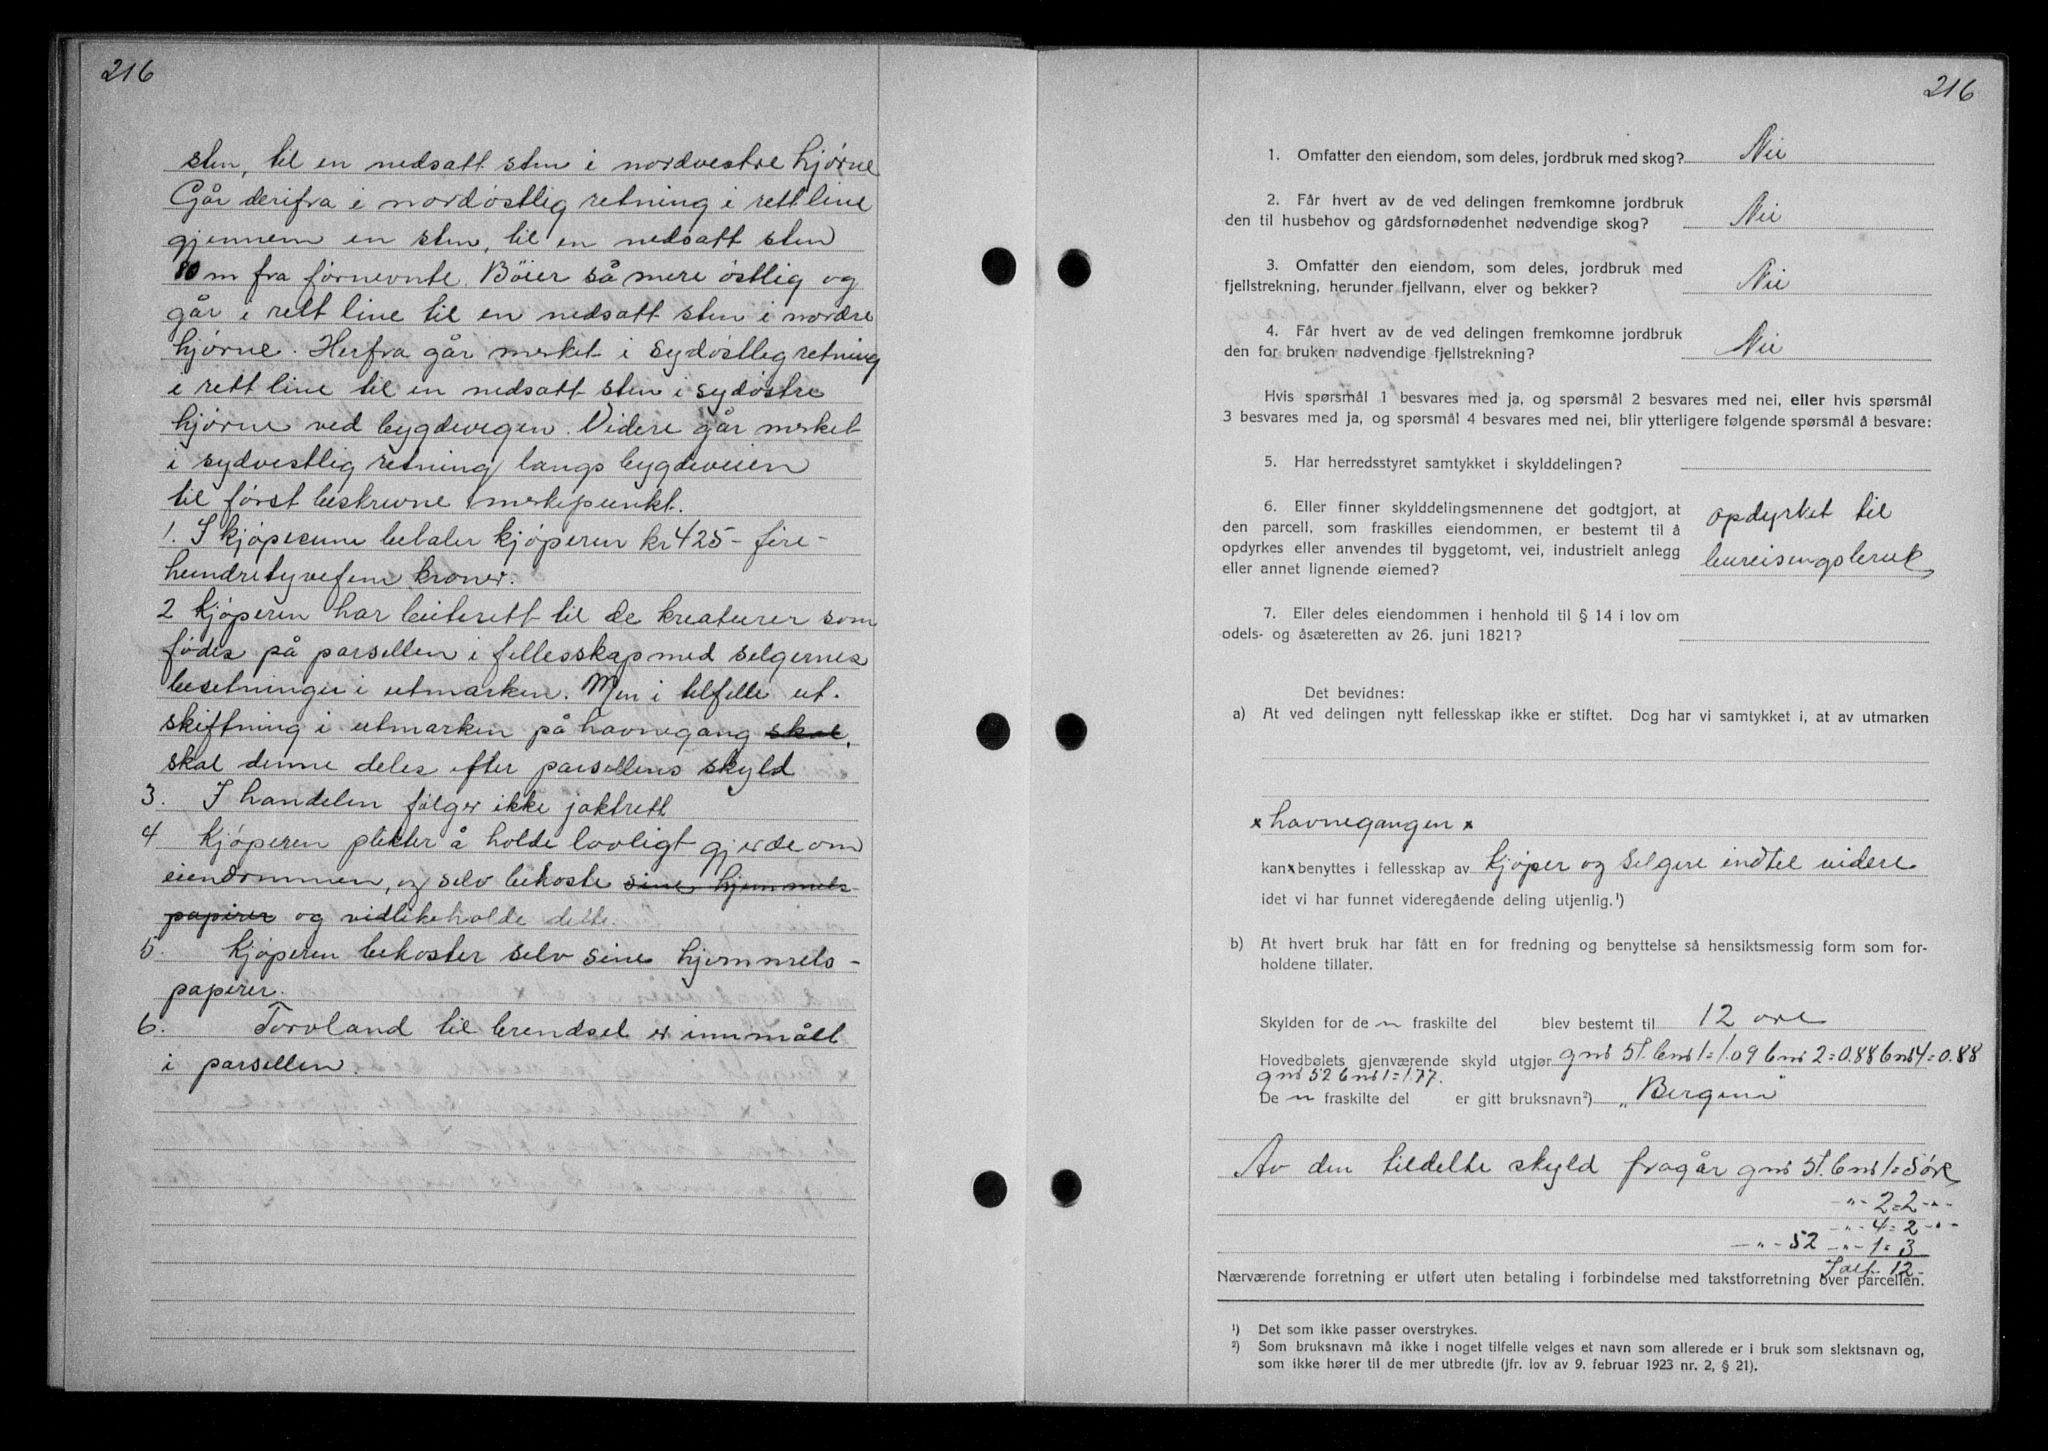 216
sten, til en nedsatt sten i nordvestre hjørne
Går derifra i nordøstlig retning i rett line
gjennem en sten, til en nedsatt sten
80 m fra førnevnte. Böier så mere östlig og
går i rett line til en nedsatt sten i nordre
hjørne. Herfra går merket i sydöstlig retning
i rett line til en nedsatt sten i sydøstre
hjørne ved bygdevegen. Videre går merket
i sydvestlig retning langs bygdeveien
til først beskrevne merkepunkt.
1. I kjøpesum betaler kjøperen kr 425- fire-
hundretyvefem kroner.
2 Kjøperen har beiterett til de kreaturer som
fødes på parsellen i fellesskap med selgernes
besetninger i utmarken. Men i tilfelle ut-
skiftning i utmarken på havnegang skal,
skal denne deles efter parsellens skyld
3. I handelen følger ikke jaktrett
4 Kjøperen plikter å holde lovligt gjerde om
eiendommen, og selv bekoste sine hjemmels-
papirer og vidlikeholde dette.
5. Kjøperen bekoster selv sine hjemmels-
papirer.
6. Torvland til brendsel er innmålt
i parsellen.
216
1. Omfatter den eiendom, som deles, jordbruk med skog? Nei
2. Får hvert av de ved delingen fremkomne jordbruk
den til husbehov og gårdsfornødenhet nødvendige skog? Nei
3. Omfatter den eiendom, som deles, jordbruk med
fjellstrekning, herunder fjellvann, elver og bekker? Nei
4. Får hvert av de ved delingen fremkomne jordbruk
den for bruken nødvendige fjellstrekning? Nei
Hvis spørsmål 1 besvares med ja, og spørsmål 2 besvares med nei, eller hvis spørsmål
3 besvares med ja, og spørsmål 4 besvares med nei, blir ytterligere følgende spørsmål å besvare:
5. Har herredsstyret samtykket i skylddelingen?
6. Eller finner skylddelingsmennene det godtgjort, at
den parcell, som fraskilles eiendommen, er bestemt til å
opdyrkes eller anvendes til byggetomt, vei, industrielt anlegg
eller annet lignende øiemed? opdyrket til
bureisingsbruk
7. Eller deles eiendommen i henhold til § 14 i lov om
odels- og åsæteretten av 26. juni 1821?
Det bevidnes:
a) At ved delingen nytt fellesskap ikke er stiftet. Dog har vi samtykket i, at av utmarken
x havnegangen x
kan x benyttes i fellesskap av kjøper og selgere indtil videre
idet vi har funnet videregående deling utjenlig.¹)
b) At hvert bruk har fått en for fredning og benyttelse så hensiktsmessig form som for-
holdene tillater.
Skylden for de n fraskilte del blev bestemt til 12 øre
Hovedbølets gjenværende skyld utgjør gnr 51. bnr 1=1.09 bnr 2=0.88 bnr 4=0.88
gnr 52 bnr 1=1.77.
De n fraskilte del er gitt bruksnavn²) "Bergeni"
Av den tildelte skyld fragår gnr 51. bnr 1=5øre
-"- 2=2 -"-
-"- 4=2 -"-
-"- 52 -"- 1=3
Ialt 12-
Nærværende forretning er utført uten betaling i forbindelse med takstforretning over parcellen.
¹) Det som ikke passer overstrykes.
²) Som bruksnavn må ikke i noget tilfelle velges et navn som allerede er i bruk som slektsnavn og,
som ikke hører til de mer utbredte (jfr. lov av 9. februar 1923 nr. 2, § 21).